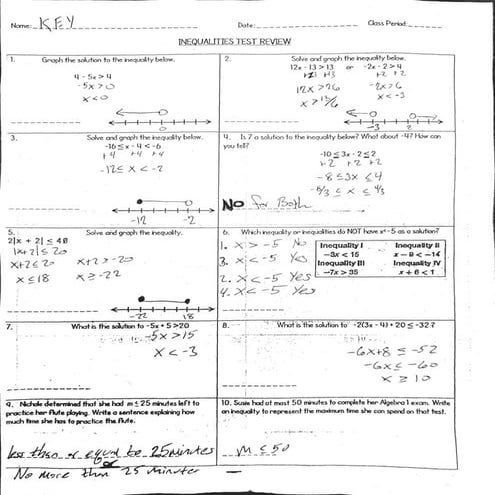 Name: KEY Date: Class Period:
INEQUALITIES TEST REVIEW
1. Graph the solution to the inequality below.
4 - 5x > 4
-5x > 0
x < 0
0
2. Solve and graph the inequality below.
12x - 13 > 13 or -2x - 2 > 4
+13 +13 +2 +2
12x > 26 -2x > 6
x > 13/6 x < -3
-3 2
3. Solve and graph the inequality below.
-16 ≤ x - 4 < -6
+4 +4 +4
-12 ≤ x < -2
-12 -2
4. Is 7 a solution to the inequality below? What about -4? How can
you tell?
-10 ≤ 3x - 2 ≤ 2
+2 +2 +2
-8 ≤ 3x ≤ 4
-8/3 ≤ x ≤ 4/3
NO for Both
5. Solve and graph the inequality.
2|x + 2| ≤ 40
|x+2| ≤ 20
x+2 ≤ 20 x+2 ≥ -20
x ≤ 18 x ≥ -22
-22 18
6. Which inequality or inequalities do NOT have x=-5 as a solution?
1. x > -5 No
3. x < -5 Yes
2. x < -5 Yes
4. x < -5 Yes
Inequality I Inequality II
-3x < 15 x - 9 < -14
Inequality III Inequality IV
-7x > 35 x + 6 < 1
7. What is the solution to -5x + 5 > 20
-5x > 15
x < -3
8. What is the solution to -2(3x - 4) + 20 ≤ -32?
-6x+8 ≤ -52
-6x ≤ -60
x ≥ 10
9. Nichole determined that she had m ≤ 25 minutes left to
practice her flute playing. Write a sentence explaining how
much time she has to practice the flute.
less than or equal to 25 minutes
or
No more than 25 minutes
10. Susie had at most 50 minutes to complete her Algebra 1 exam. Write
an inequality to represent the maximum time she can spend on that test.
m ≤ 50